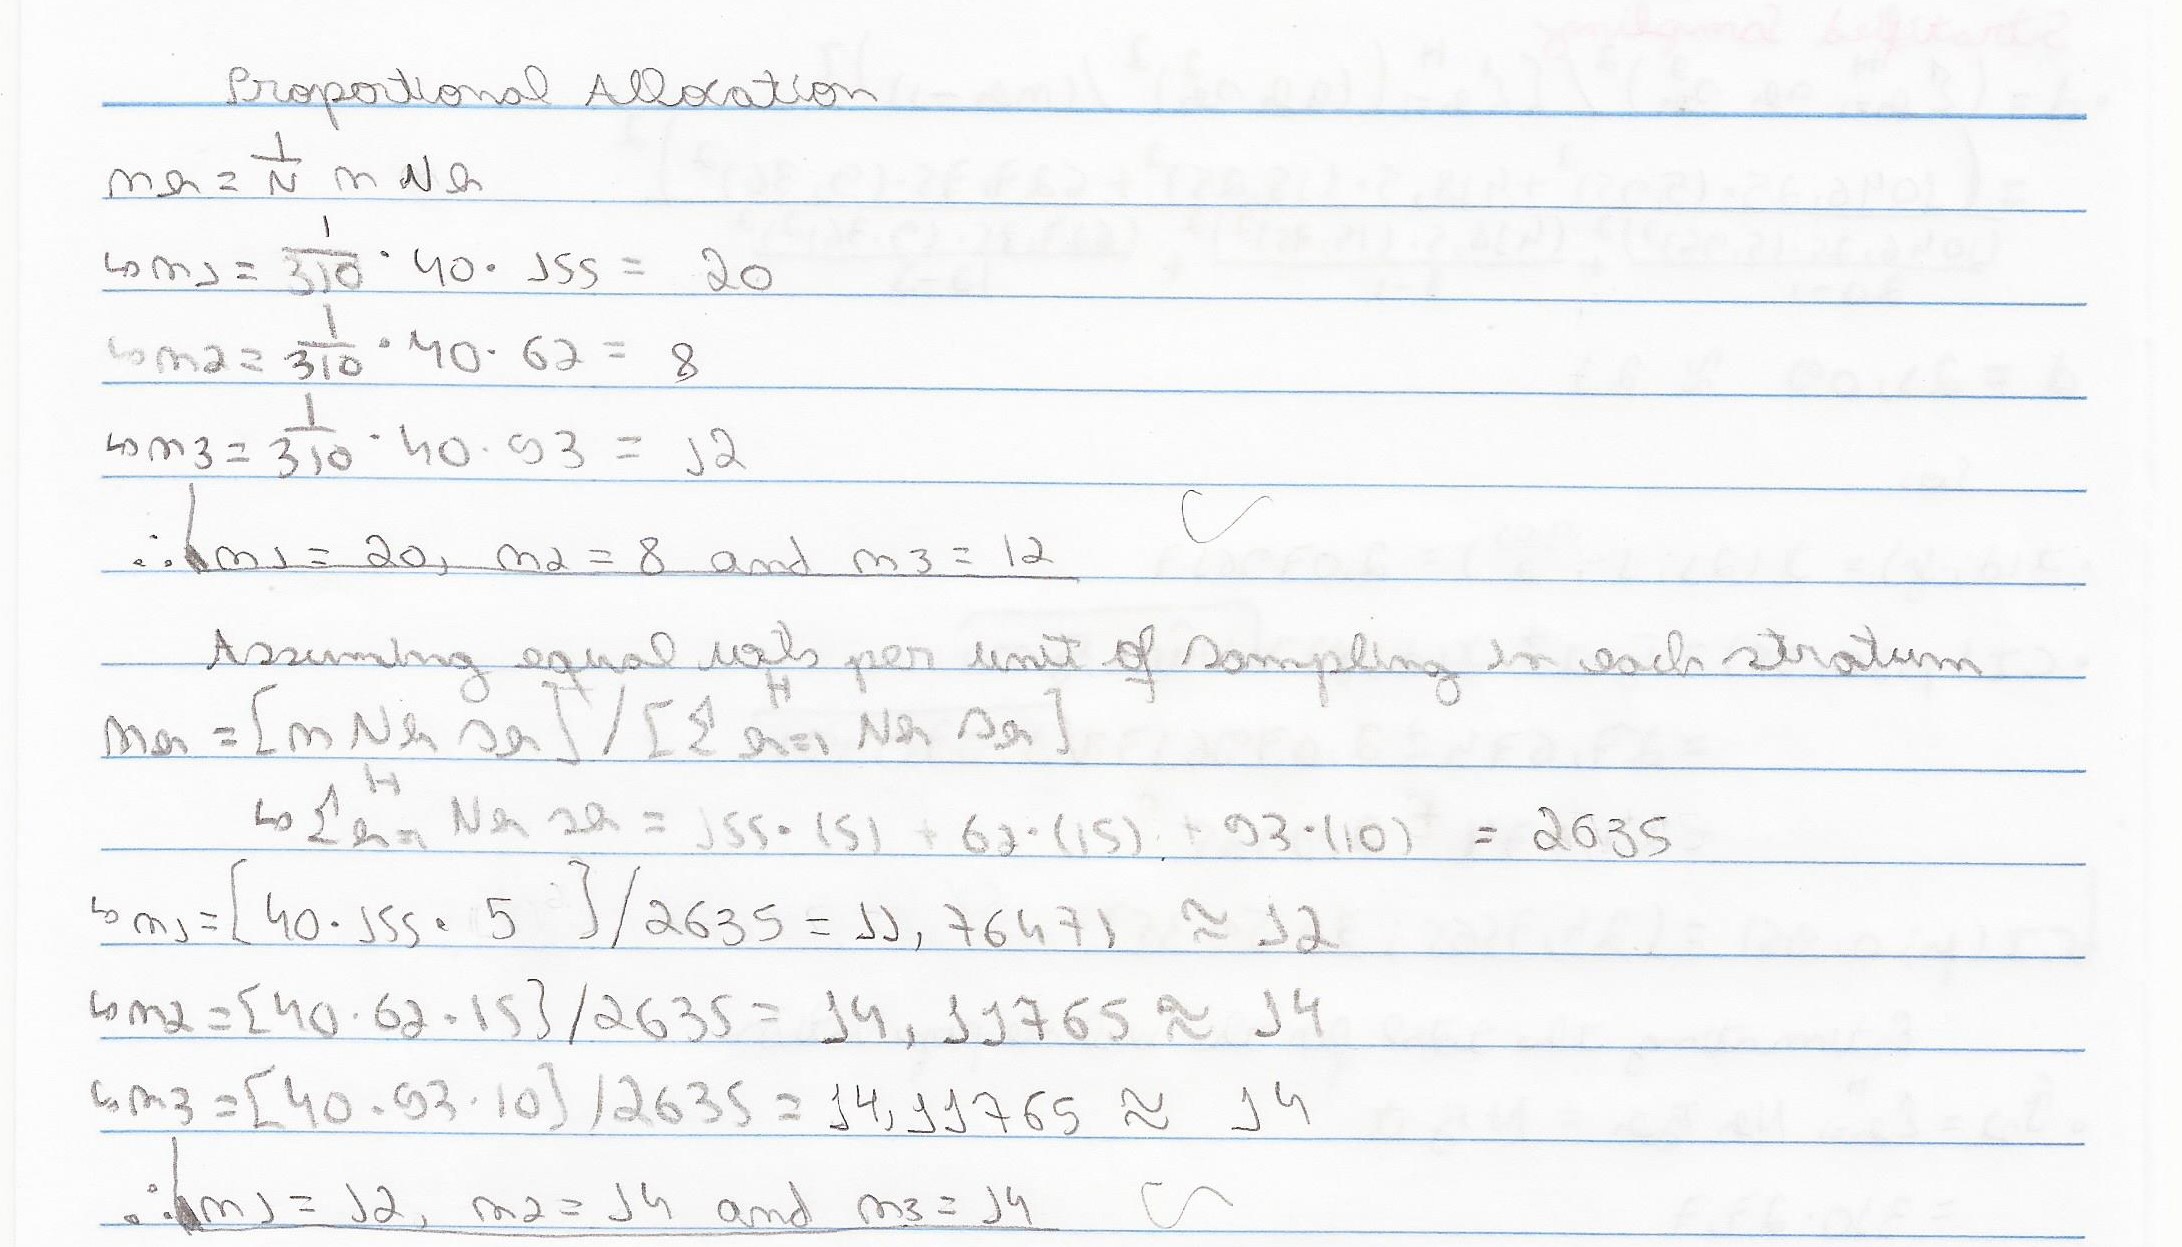 Proportional Allocation
nh = 1/N n Nh
↳ n1 = 1/310 · 40 · 155 = 20
↳ n2 = 1/310 · 40 · 62 = 8
↳ n3 = 1/310 · 40 · 93 = 12
∴ n1 = 20, n2 = 8 and n3 = 12
Assuming equal costs per unit of sampling in each stratum
nh = [n Nh sh] / [Σ h=1 H Nh sh]
↳ Σ h=1 H Nh sh = 155·(5) + 62·(15) + 93·(10) = 2635
↳ n1 = [40 · 155 · 5 ] / 2635 = 11,76471 ≈ 12
↳ n2 = [40 · 62 · 15] / 2635 = 14,11765 ≈ 14
↳ n3 = [40 · 93 · 10] / 2635 = 14,11765 ≈ 14
∴ n1 = 12, n2 = 14 and n3 = 14